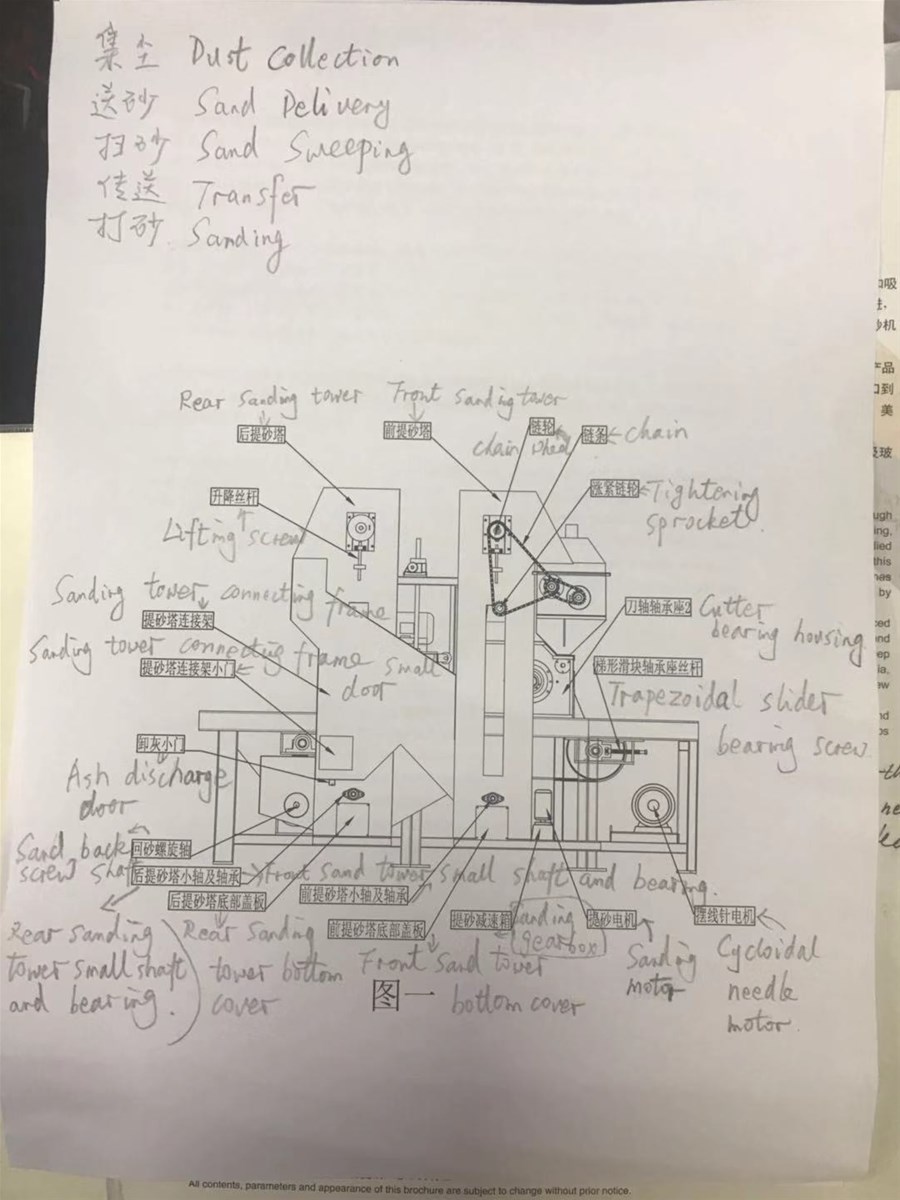 集尘 Dust Collection
送砂 Sand Delivery
扫砂 Sand Sweeping
传送 Transfer
打砂 Sanding
Rear Sanding tower Front Sanding tower
后提砂塔
前提砂塔
链轮
链条
chain
chain wheel
升降丝杆
涨紧链轮
Tightening
sprocket.
Lifting screw
Sanding tower connecting frame
提砂塔连接架
刀轴轴承座2
Cutter
bearing housing
Sanding tower connecting frame small
door
提砂塔连接架小门
梯形滑块轴承座丝杆
Trapezoidal slider
bearing screw
卸灰小门
Ash discharge
door
Sand back
screw shaft
回砂螺旋轴
后提砂塔小轴及轴承
Front Sand tower small shaft and bearing.
前提砂塔小轴及轴承
后提砂塔底部盖板
前提砂塔底部盖板
提砂减速箱
Sanding
(gearbox)
提砂电机
摆线针电机
Rear Sanding
tower small shaft
and bearing.
Rear Sanding
tower bottom
cover
Front Sand tower
bottom cover
Sanding
motor
Cycloidal
needle
motor.
图一
口吸
砂机
产品
口到
美
及玻
ough
ing,
lied
this
nes
by
ced
and
eep
ia,
ew
nd
os
All contents, parameters and appearance of this brochure are subject to change without prior notice.